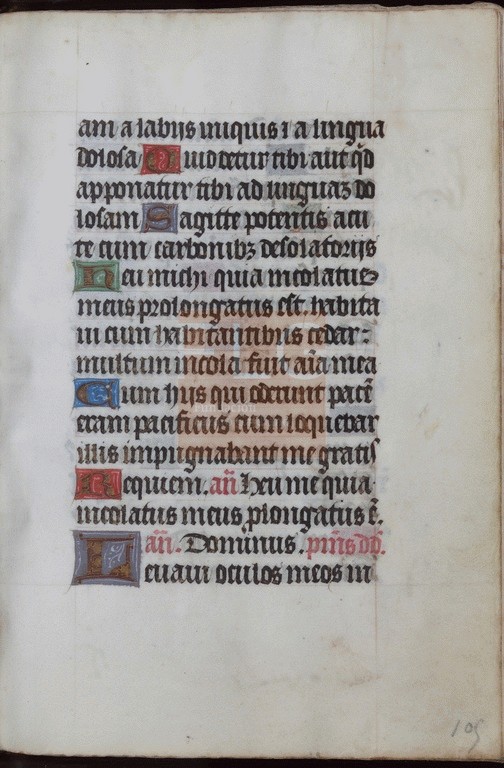 am a labijs iniquis ⁊ a lingua
dolosa Quid detur tibi aut qd̄
apponatur tibi ad linguaꝫ do
losam Sagitte potentis acu
te cum carbonibꝫ desolatorijs
Heu michi quia incolatus
meus prolongatus est. habita
ui cum habitantibus cedar:
multum incola fuit aīa mea
Cum hijs qui oderunt pacē
eram pacificus cum loquebar
illis impugnabant me gratis
Requiem. an̄ Heu me quia
incolatus meus ꝓlongatus ē.
an̄. Dominus. 
Leuaui oculos meos in
109